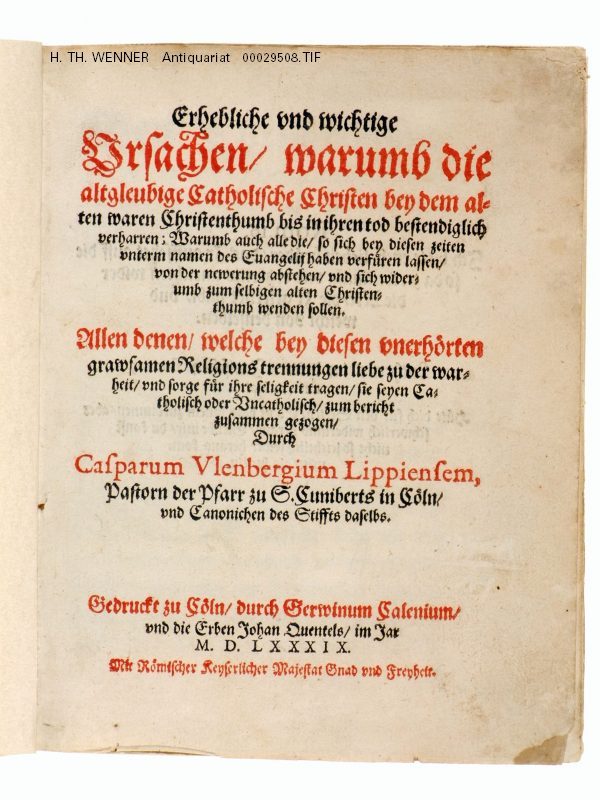 H. TH. WENNER Antiquariat 00029508.TIF
Erhebliche vnd wichtige
Vrsachen/ warumb die
altgleubige Catholische Christen bey dem al-
ten waren Christenthumb bis in ihren tod bestendiglich
verharren: Warumb auch alle die/ so sich bey diesen zeiten
vnterm namen des Euangelij haben verfüren lassen/
von der newerung abstehen/ vnd sich wider-
umb zum selbigen alten Christen-
thumb wenden sollen.
Allen denen/ welche bey diesen vnerhörten
grawsamen Religions trennungen liebe zu der war-
heit/ vnd sorge für ihre seligkeit tragen/ sie seyen Ca-
tholisch oder Vncatholisch/ zum bericht
zusammen gezogen/
Durch
Casparum Vlenbergium Lippiensem,
Pastorn der Pfarr zu S. Cuniberts in Cöln/
vnd Canonichen des Stiffts daselbs.
Gedruckt zu Cöln/ durch Gerwinum Calenium/
vnd die Erben Johan Quentels/ im Jar
M. D. LXXXIX.
Mit Römischer Keyserlicher Majestat Gnad vnd Freyheit.